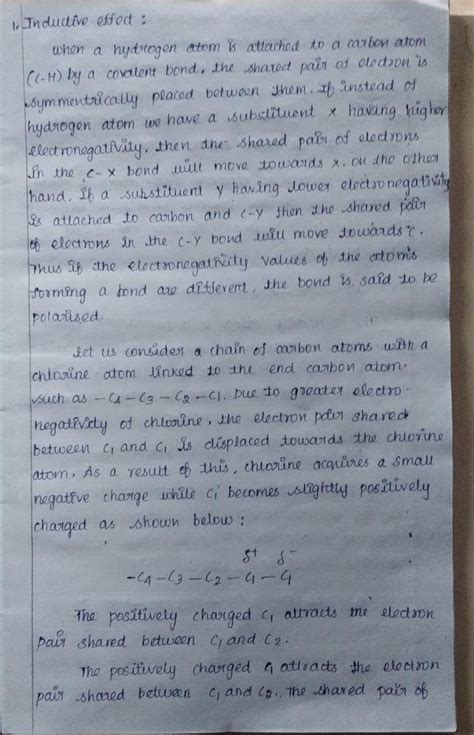 1. Inductive effect :
When a hydrogen atom is attached to a carbon atom
(C-H) by a covalent bond, the shared pair of electron is
symmentrically placed between them. If instead of
hydrogen atom we have a substituent x having higher
electronegativity, then the shared pair of electrons
in the C-X bond will move towards x. on the other
hand, if a substituent Y having lower electronegativity
is attached to carbon and C-Y then the shared pair
of electrons in the C-Y bond will move towards 'C.
Thus if the electronegativity values of the atoms
forming a bond are different, the bond is said to be
polarised.
Let us consider a chain of carbon atoms with a
chlorine atom linked to the end carbon atom.
such as -C4-C3-C2-Cl. Due to greater electro-
negativity of chlorine, the electron pair shared
between C1 and Cl is displaced towards the chlorine
atom. As a result of this, chlorine acquires a small
negative charge while C1 becomes slightly positively
charged as shown below :
δ+ δ-
-C4-C3-C2-C1-Cl
The positively charged C1 attracts the electron
pair shared between C1 and C2.
The positively charged C1 attracts the electron
pair shared between C1 and C2. The shared pair of